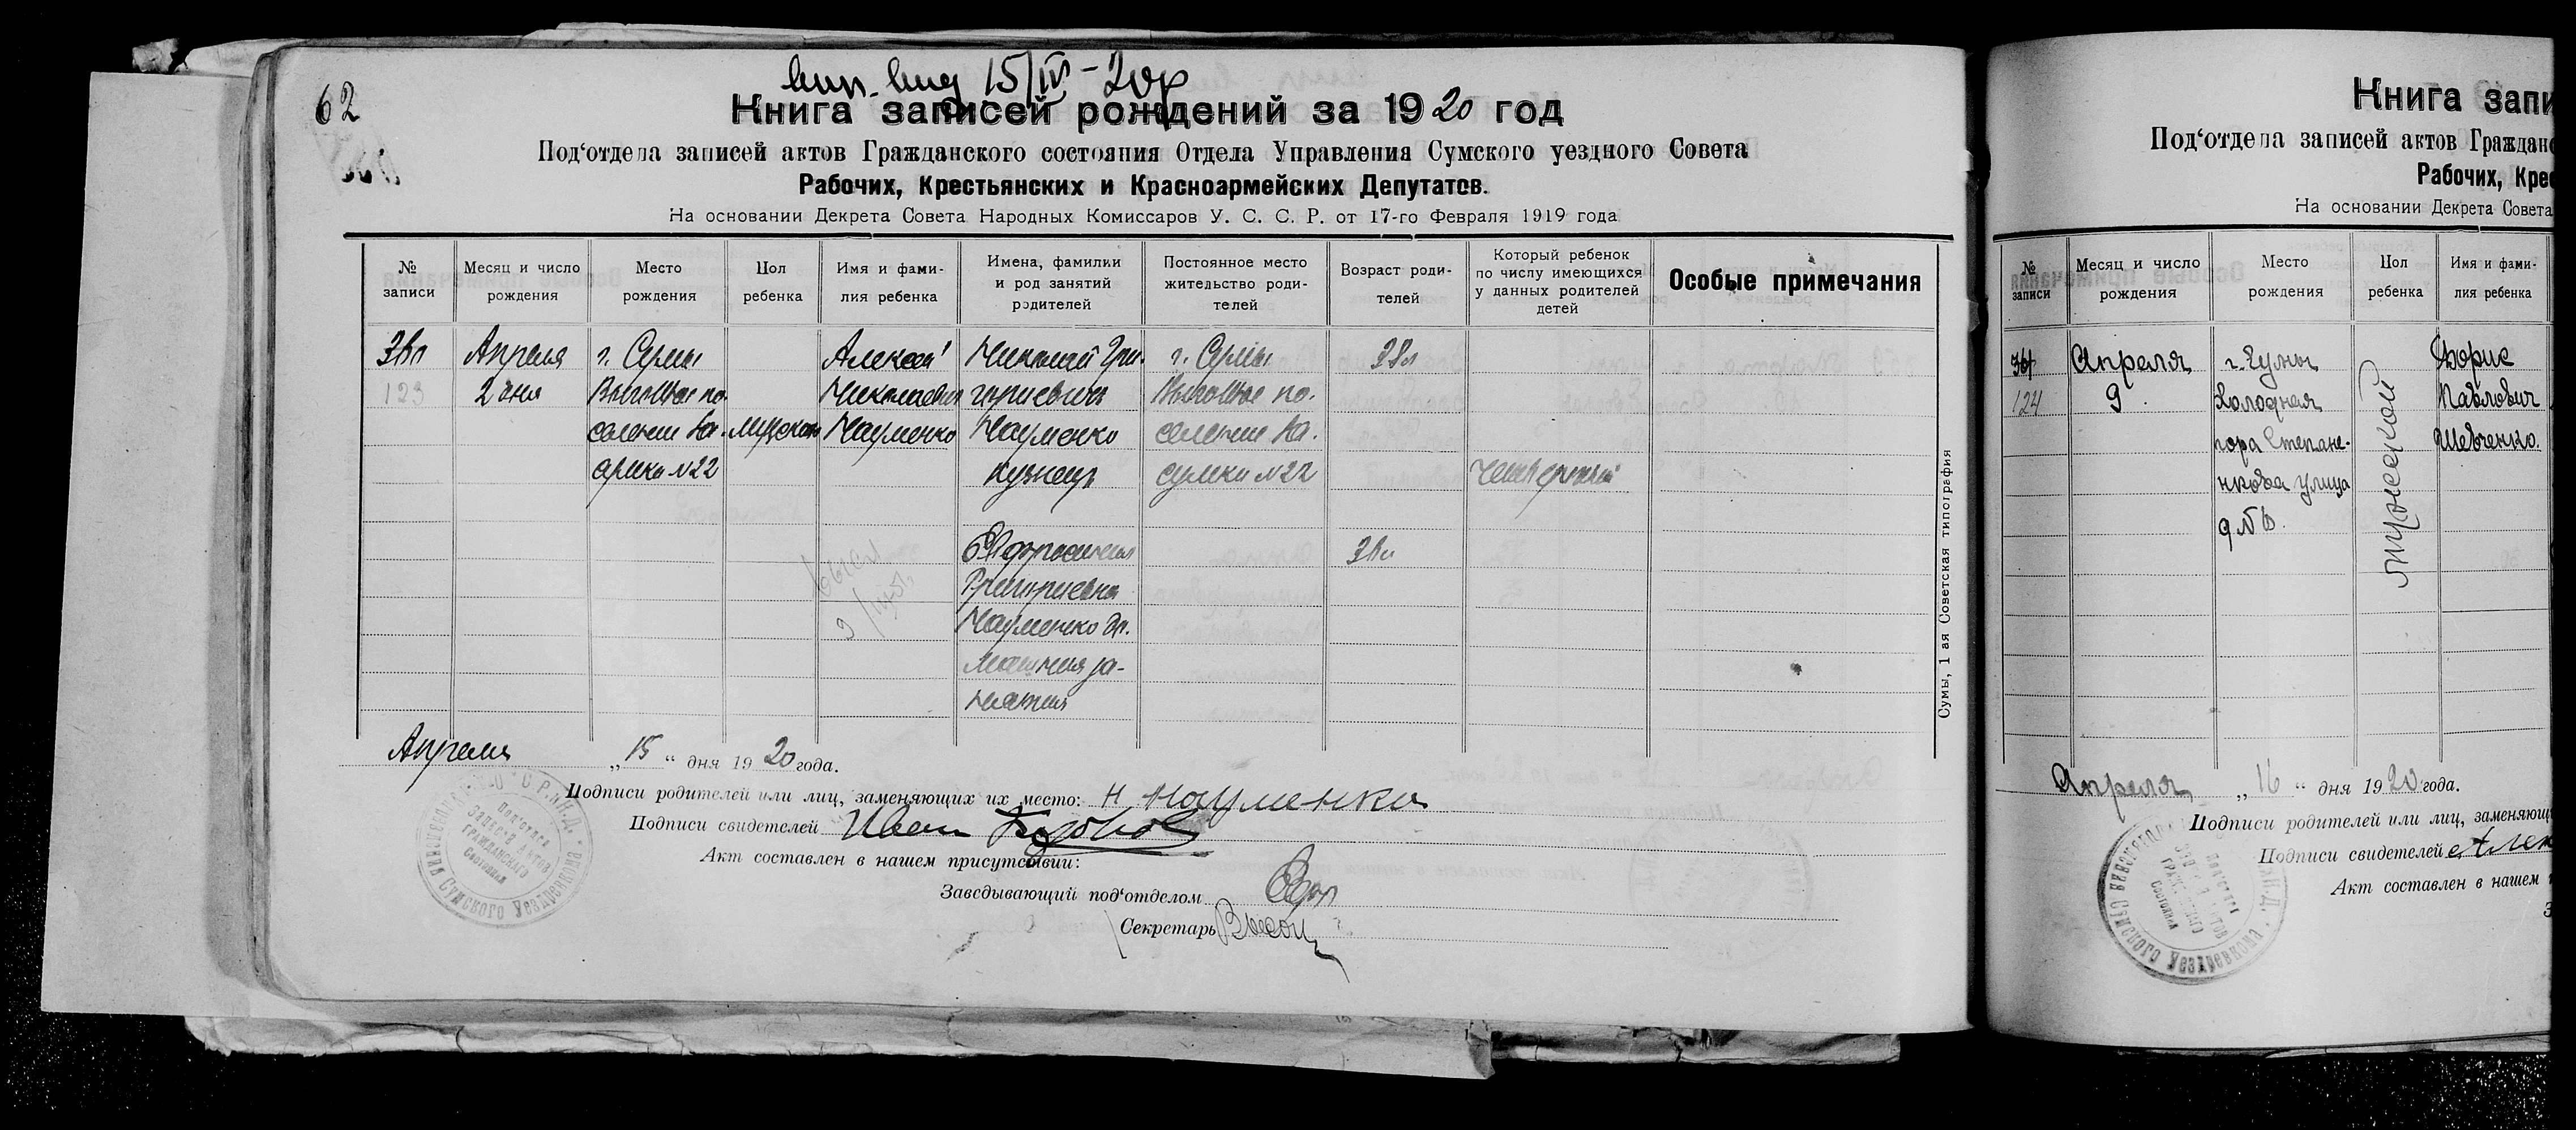 62
15/IV-20р
Книга записей рождений за 1920 год
Под‘отдела записей актов Гражданского состояния Отдела Управления Сумского уездного Совета
Рабочих, Крестьянских и Красноармейских Депутатов.
На основании Декрета Совета Народных Комиссаров У. С. С. Р. от 17-го Февраля 1919 года
№ записи
Месяц и число рождения
Место рождения
Пол ребенка
Имя и фами-лия ребенка
Имена, фамилии и род занятий родителей
Постоянное место жительство роди-телей
Возраст роди-телей
Который ребенок по числу имеющихся у данных родителей детей
Особые примечания
123
Апреля
2 дня
г. Сумы
по-
селение
№22
мужской
Алексей
Николаевич
Науменко
Николай Гри-
гориевич
Науменко
кузнец
г. Сумы
по-
селение
№22
38л
четвертый
Григориевна
Науменко до-
машния за-
нятия
Апреля „15“ дня 1920 года.
Подписи родителей или лиц, заменяющих их место: Н Науменко
Подписи свидетелей Иван
Акт составлен в нашем присутствии:
Заведывающий под‘отделом
Секретарь
Сумы, 1 ая Советская типография
Книга запи
Под‘отдела записей актов Граждан
Рабочих, Кре
На основании Декрета Совета
№ записи
Месяц и число рождения
Место рождения
Пол ребенка
Имя и фами-лия ребенка
124
Апреля
9
г. Сумы
Холодная
гора Степане-
нкова улица
мужской
Борис
Павлович
Шевченко.
Апреля „16“ дня 1920 года.
Подписи родителей или лиц, заменяющ
Подписи свидетелей Алек
Акт составлен в нашем